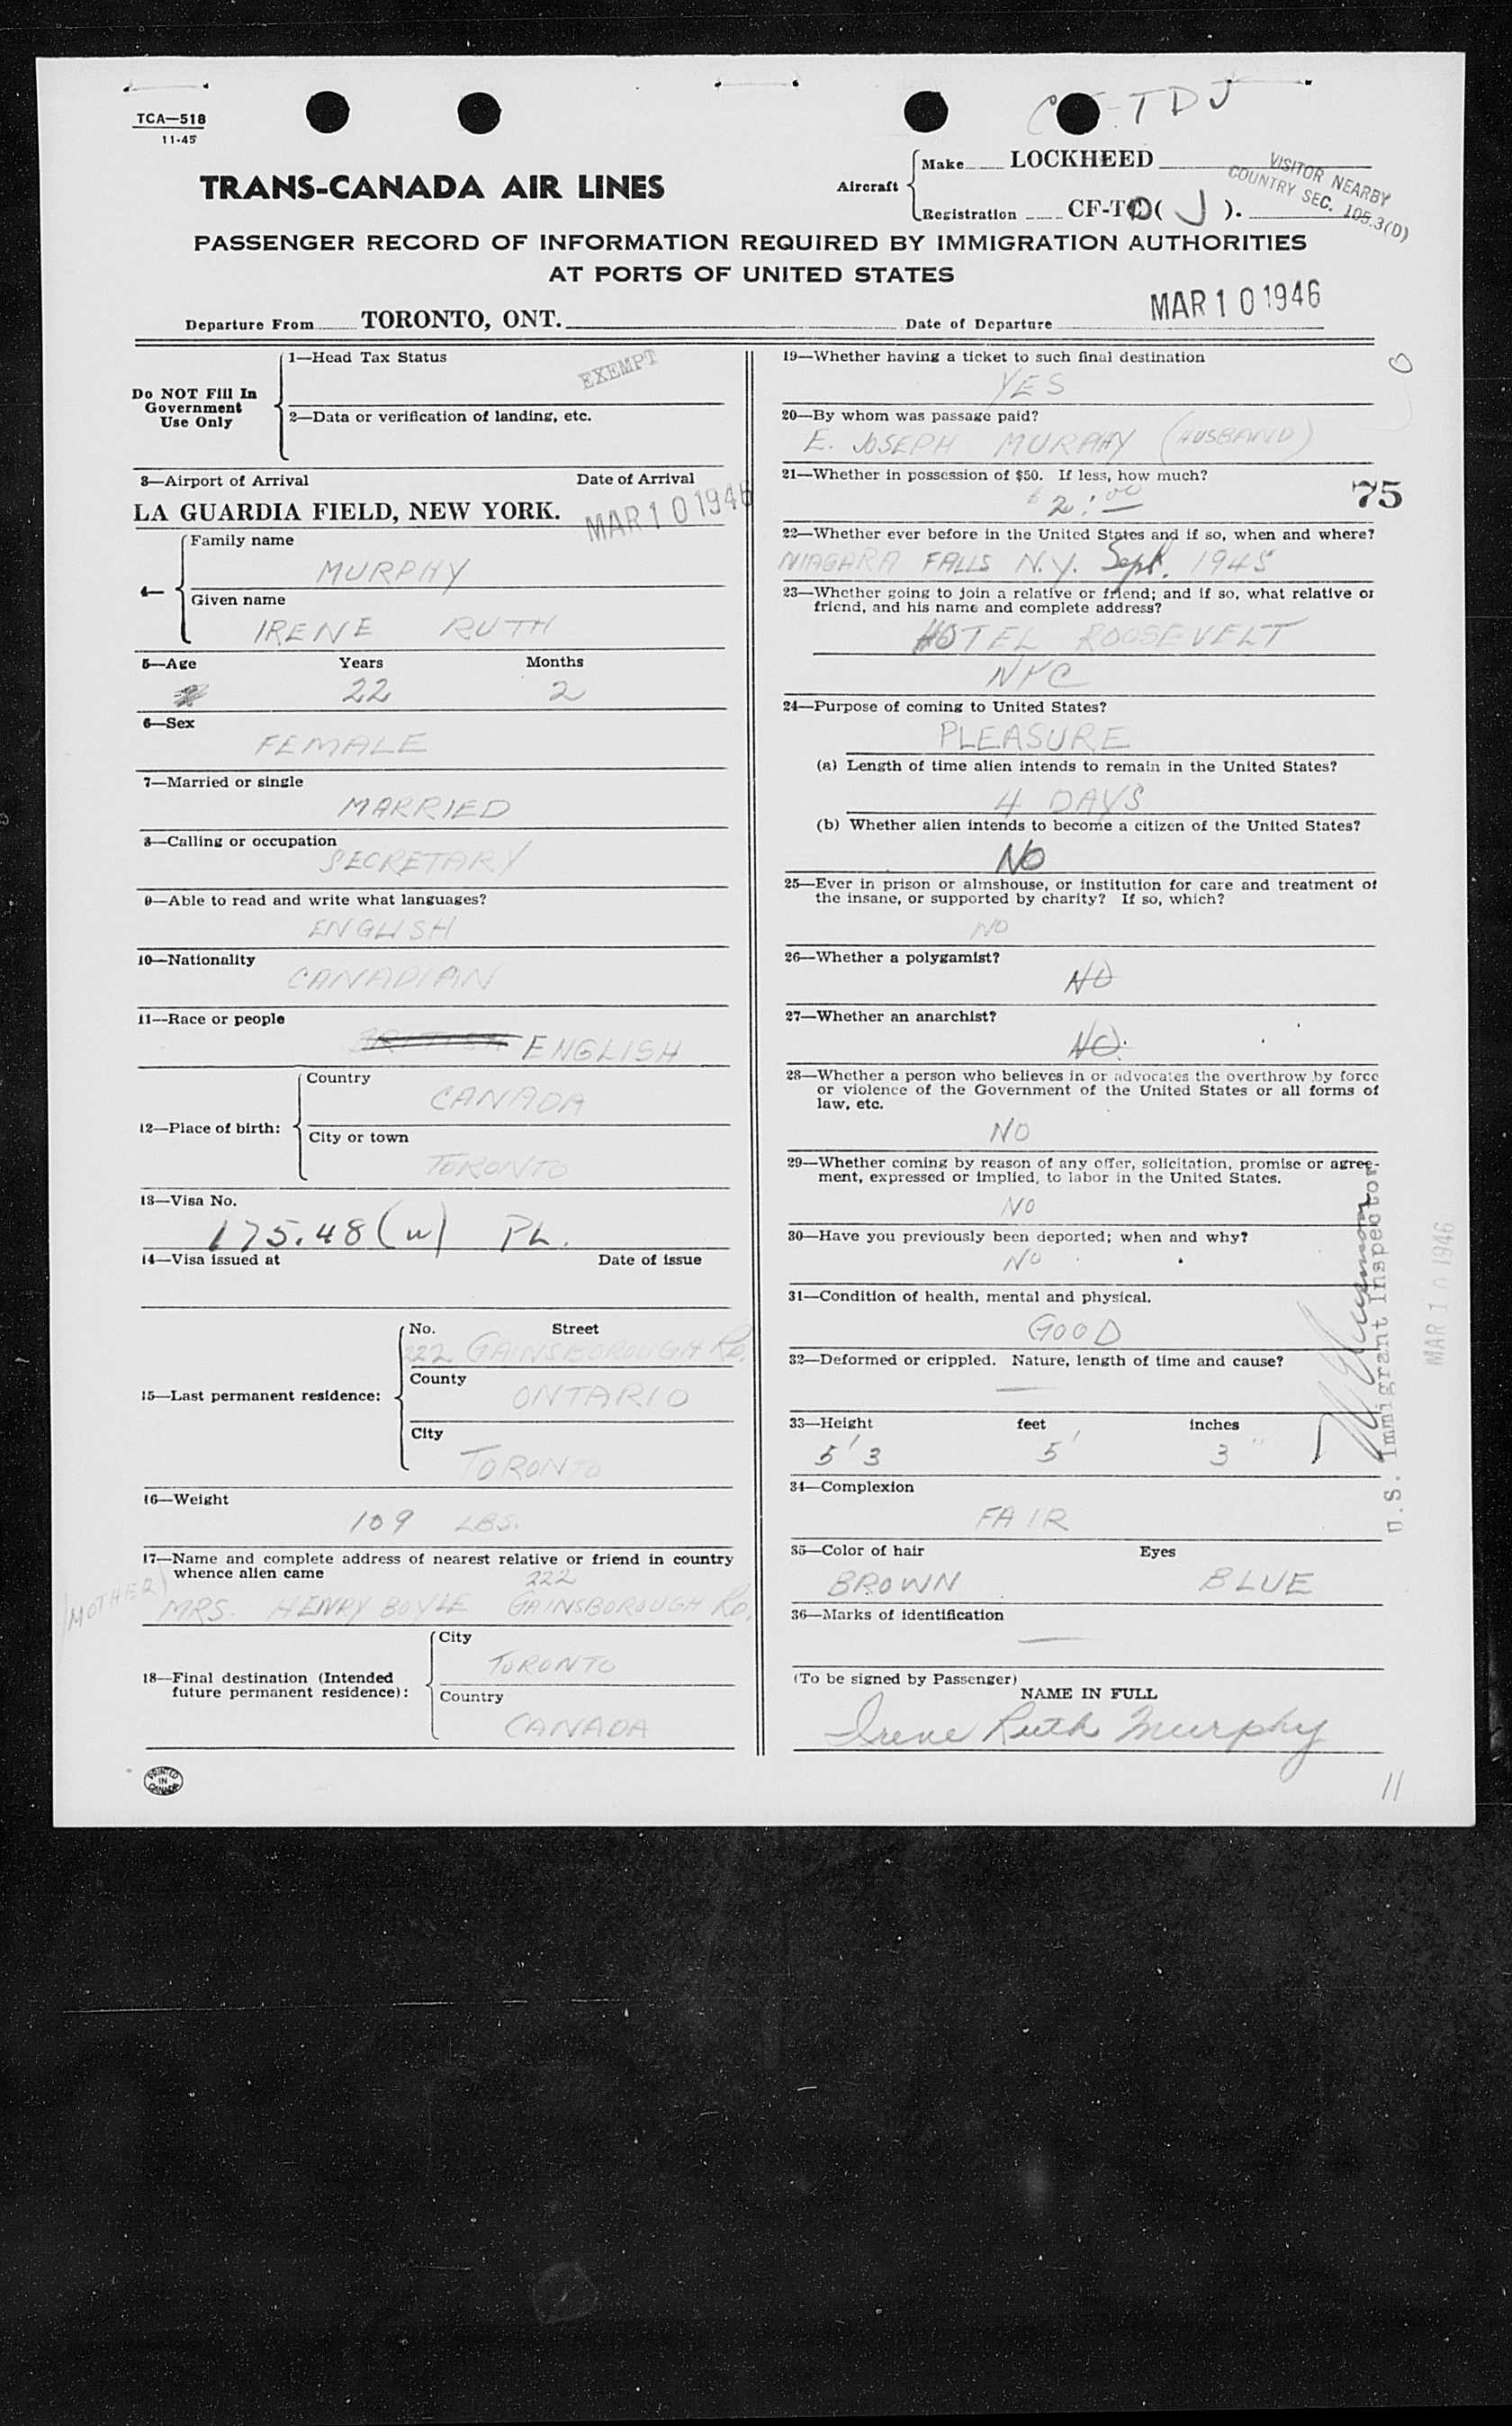 CF-TDJ
TCA—518
11-45
TRANS-CANADA AIR LINES
Aircraft
Make LOCKHEED
Registration CF-TD ( J ).
VISITOR NEARBY
COUNTRY SEC. 105.3(D)
PASSENGER RECORD OF INFORMATION REQUIRED BY IMMIGRATION AUTHORITIES
AT PORTS OF UNITED STATES
Departure From TORONTO, ONT. Date of Departure MAR 10 1946
Do NOT Fill In
Government
Use Only
1—Head Tax Status
EXEMPT
2—Data or verification of landing, etc.
3—Airport of Arrival Date of Arrival
LA GUARDIA FIELD, NEW YORK. MAR 10 1946
4—
Family name
MURPHY
Given name
IRENE RUTH
5—Age Years Months
22 2
6—Sex
FEMALE
7—Married or single
MARRIED
8—Calling or occupation
SECRETARY
9—Able to read and write what languages?
ENGLISH
10—Nationality
CANADIAN
11—Race or people
BRITISH ENGLISH
12—Place of birth:
Country
CANADA
City or town
TORONTO
13—Visa No.
175.48 (w) PL.
14—Visa issued at Date of issue
15—Last permanent residence:
No. Street
222 GAINSBOROUGH RD.
County
ONTARIO
City
TORONTO
16—Weight
109 LBS.
17—Name and complete address of nearest relative or friend in country
whence alien came
222
(MOTHER) MRS. HENRY BOYLE GAINSBOROUGH RD.
18—Final destination (Intended
future permanent residence):
City
TORONTO
Country
CANADA
PRINTED
IN
CANADA
19—Whether having a ticket to such final destination
YES
20—By whom was passage paid?
E. JOSEPH MURPHY (HUSBAND)
21—Whether in possession of $50. If less, how much?
$2.00
75
22—Whether ever before in the United States and if so, when and where?
NIAGARA FALLS N.Y. Sept. 1945
23—Whether going to join a relative or friend; and if so, what relative or
friend, and his name and complete address?
HOTEL ROOSEVELT
NYC
24—Purpose of coming to United States?
PLEASURE
(a) Length of time alien intends to remain in the United States?
4 DAYS
(b) Whether alien intends to become a citizen of the United States?
NO
25—Ever in prison or almshouse, or institution for care and treatment of
the insane, or supported by charity? If so, which?
NO
26—Whether a polygamist?
NO
27—Whether an anarchist?
NO.
28—Whether a person who believes in or advocates the overthrow by force
or violence of the Government of the United States or all forms of
law, etc.
NO
29—Whether coming by reason of any offer, solicitation, promise or agree-
ment, expressed or implied, to labor in the United States.
NO
30—Have you previously been deported; when and why?
NO
31—Condition of health, mental and physical.
GOOD
32—Deformed or crippled. Nature, length of time and cause?
—
33—Height feet inches
5' 3 5' 3"
34—Complexion
FAIR
35—Color of hair Eyes
BROWN BLUE
36—Marks of identification
—
(To be signed by Passenger)
NAME IN FULL
Irene Ruth Murphy
11
U.S. Immigrant Inspector
MAR 10 1946